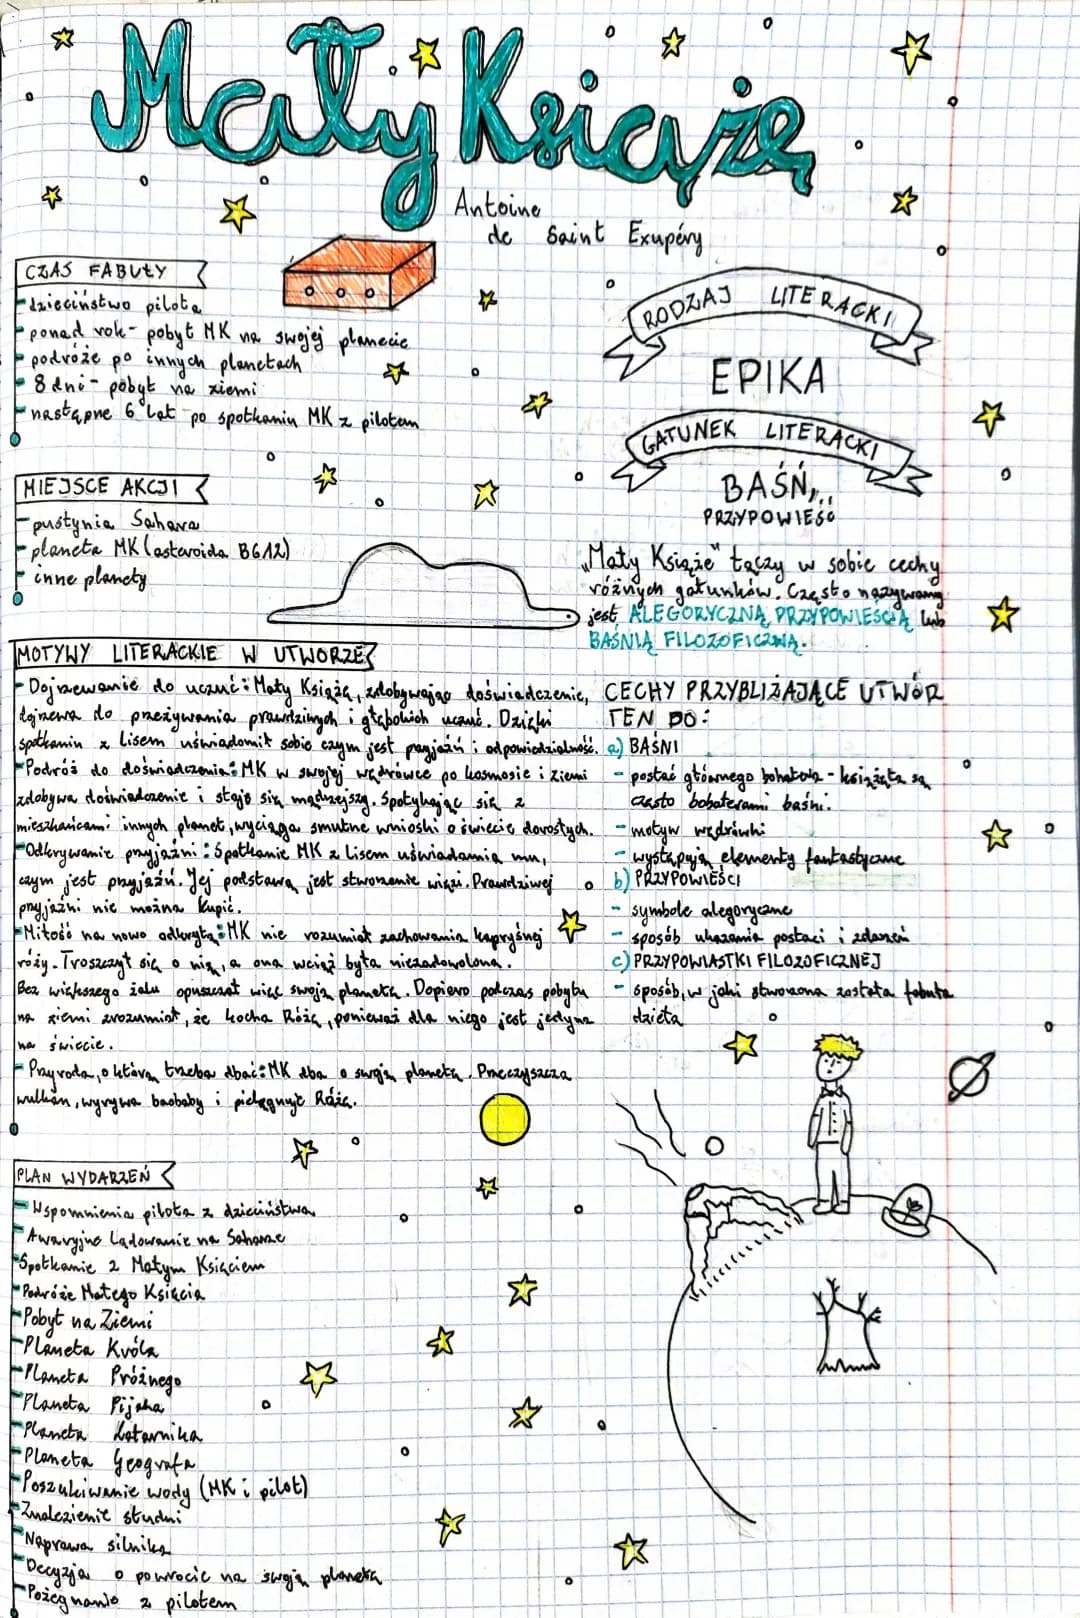 Mały Książę
Antoine
de Saint Exupéry
CZAS FABUŁY
- dzieciństwo pilota
- ponad rok - pobyt MK na swojej planecie
- podróże po innych planetach
- 8 dni - pobyt na ziemi
- następne 6 lat po spotkaniu MK z pilotem
MIEJSCE AKCJI
- pustynia Sahara
- planeta MK (asteroida B612)
- inne planety
RODZAJ LITERACKI
EPIKA
GATUNEK LITERACKI
BAŚŃ,
PRZYPOWIEŚĆ
„Mały Książe" łączy w sobie cechy
różnych gatunków. Często nazywany
jest ALEGORYCZNĄ PRZYPOWIEŚCIĄ lub
BAŚNIĄ FILOZOFICZNĄ.
MOTYWY LITERACKIE W UTWORZE
- Dojrzewanie do uczuć: Mały Książę, zdobywając doświadczenie,
dojrzewa do przeżywania prawdziwych i głębokich uczuć. Dzięki
spotkaniu z lisem uświadomił sobie czym jest przyjaźń i odpowiedzialność.
- Podróż do doświadczenia: MK w swojej wędrówce po kosmosie i ziemi
zdobywa doświadczenie i staje się mądrzejszy. Spotykając się z
mieszkańcami innych planet, wyciąga smutne wnioski o świecie dorosłych.
- Odkrywanie przyjaźni: Spotkanie MK z Lisem uświadamia mu,
czym jest przyjaźń. Jej podstawą jest stworzenie więzi. Prawdziwej
przyjaźni nie można kupić.
- Miłość na nowo odkryta: MK nie rozumiał zachowania kapryśnej
róży. Troszczył się o nią, a ona wciąż była niezadowolona.
Bez większego żalu opuszczał więc swoją planetę. Dopiero podczas pobytu
na ziemi zrozumiał, że kocha Różę, ponieważ dla niego jest jedyna
na świecie.
- Przyroda, o którą trzeba dbać: MK dba o swoją planetę. Przeczyszcza
wulkan, wyrywa baobaby i pielęgnuje Różę.
CECHY PRZYBLIŻAJĄCE UTWÓR
TEN DO:
a) BAŚNI
- postać głównego bohatera - książęta są
często bohaterami baśni.
- motyw wędrówki
- występują elementy fantastyczne
b) PRZYPOWIEŚCI
- symbole alegoryczne
- sposób ukazania postaci i zdarzeń
c) PRZYPOWIASTKI FILOZOFICZNEJ
- sposób, w jaki stworzona została fabuła
dzieła
PLAN WYDARZEŃ
- Wspomnienia pilota z dzieciństwa
- Awaryjne lądowanie na Saharze
- Spotkanie z Małym Księciem
- Podróże Małego Księcia
- Pobyt na Ziemi
- Planeta Króla
- Planeta Próżnego
- Planeta Pijaka
- Planeta Latarnika
- Planeta Geografa
- Poszukiwanie wody (MK i pilot)
- Znalezienie studni
- Naprawa silnika
- Decyzja o powrocie na swoją planetę
- Pożegnanie z pilotem